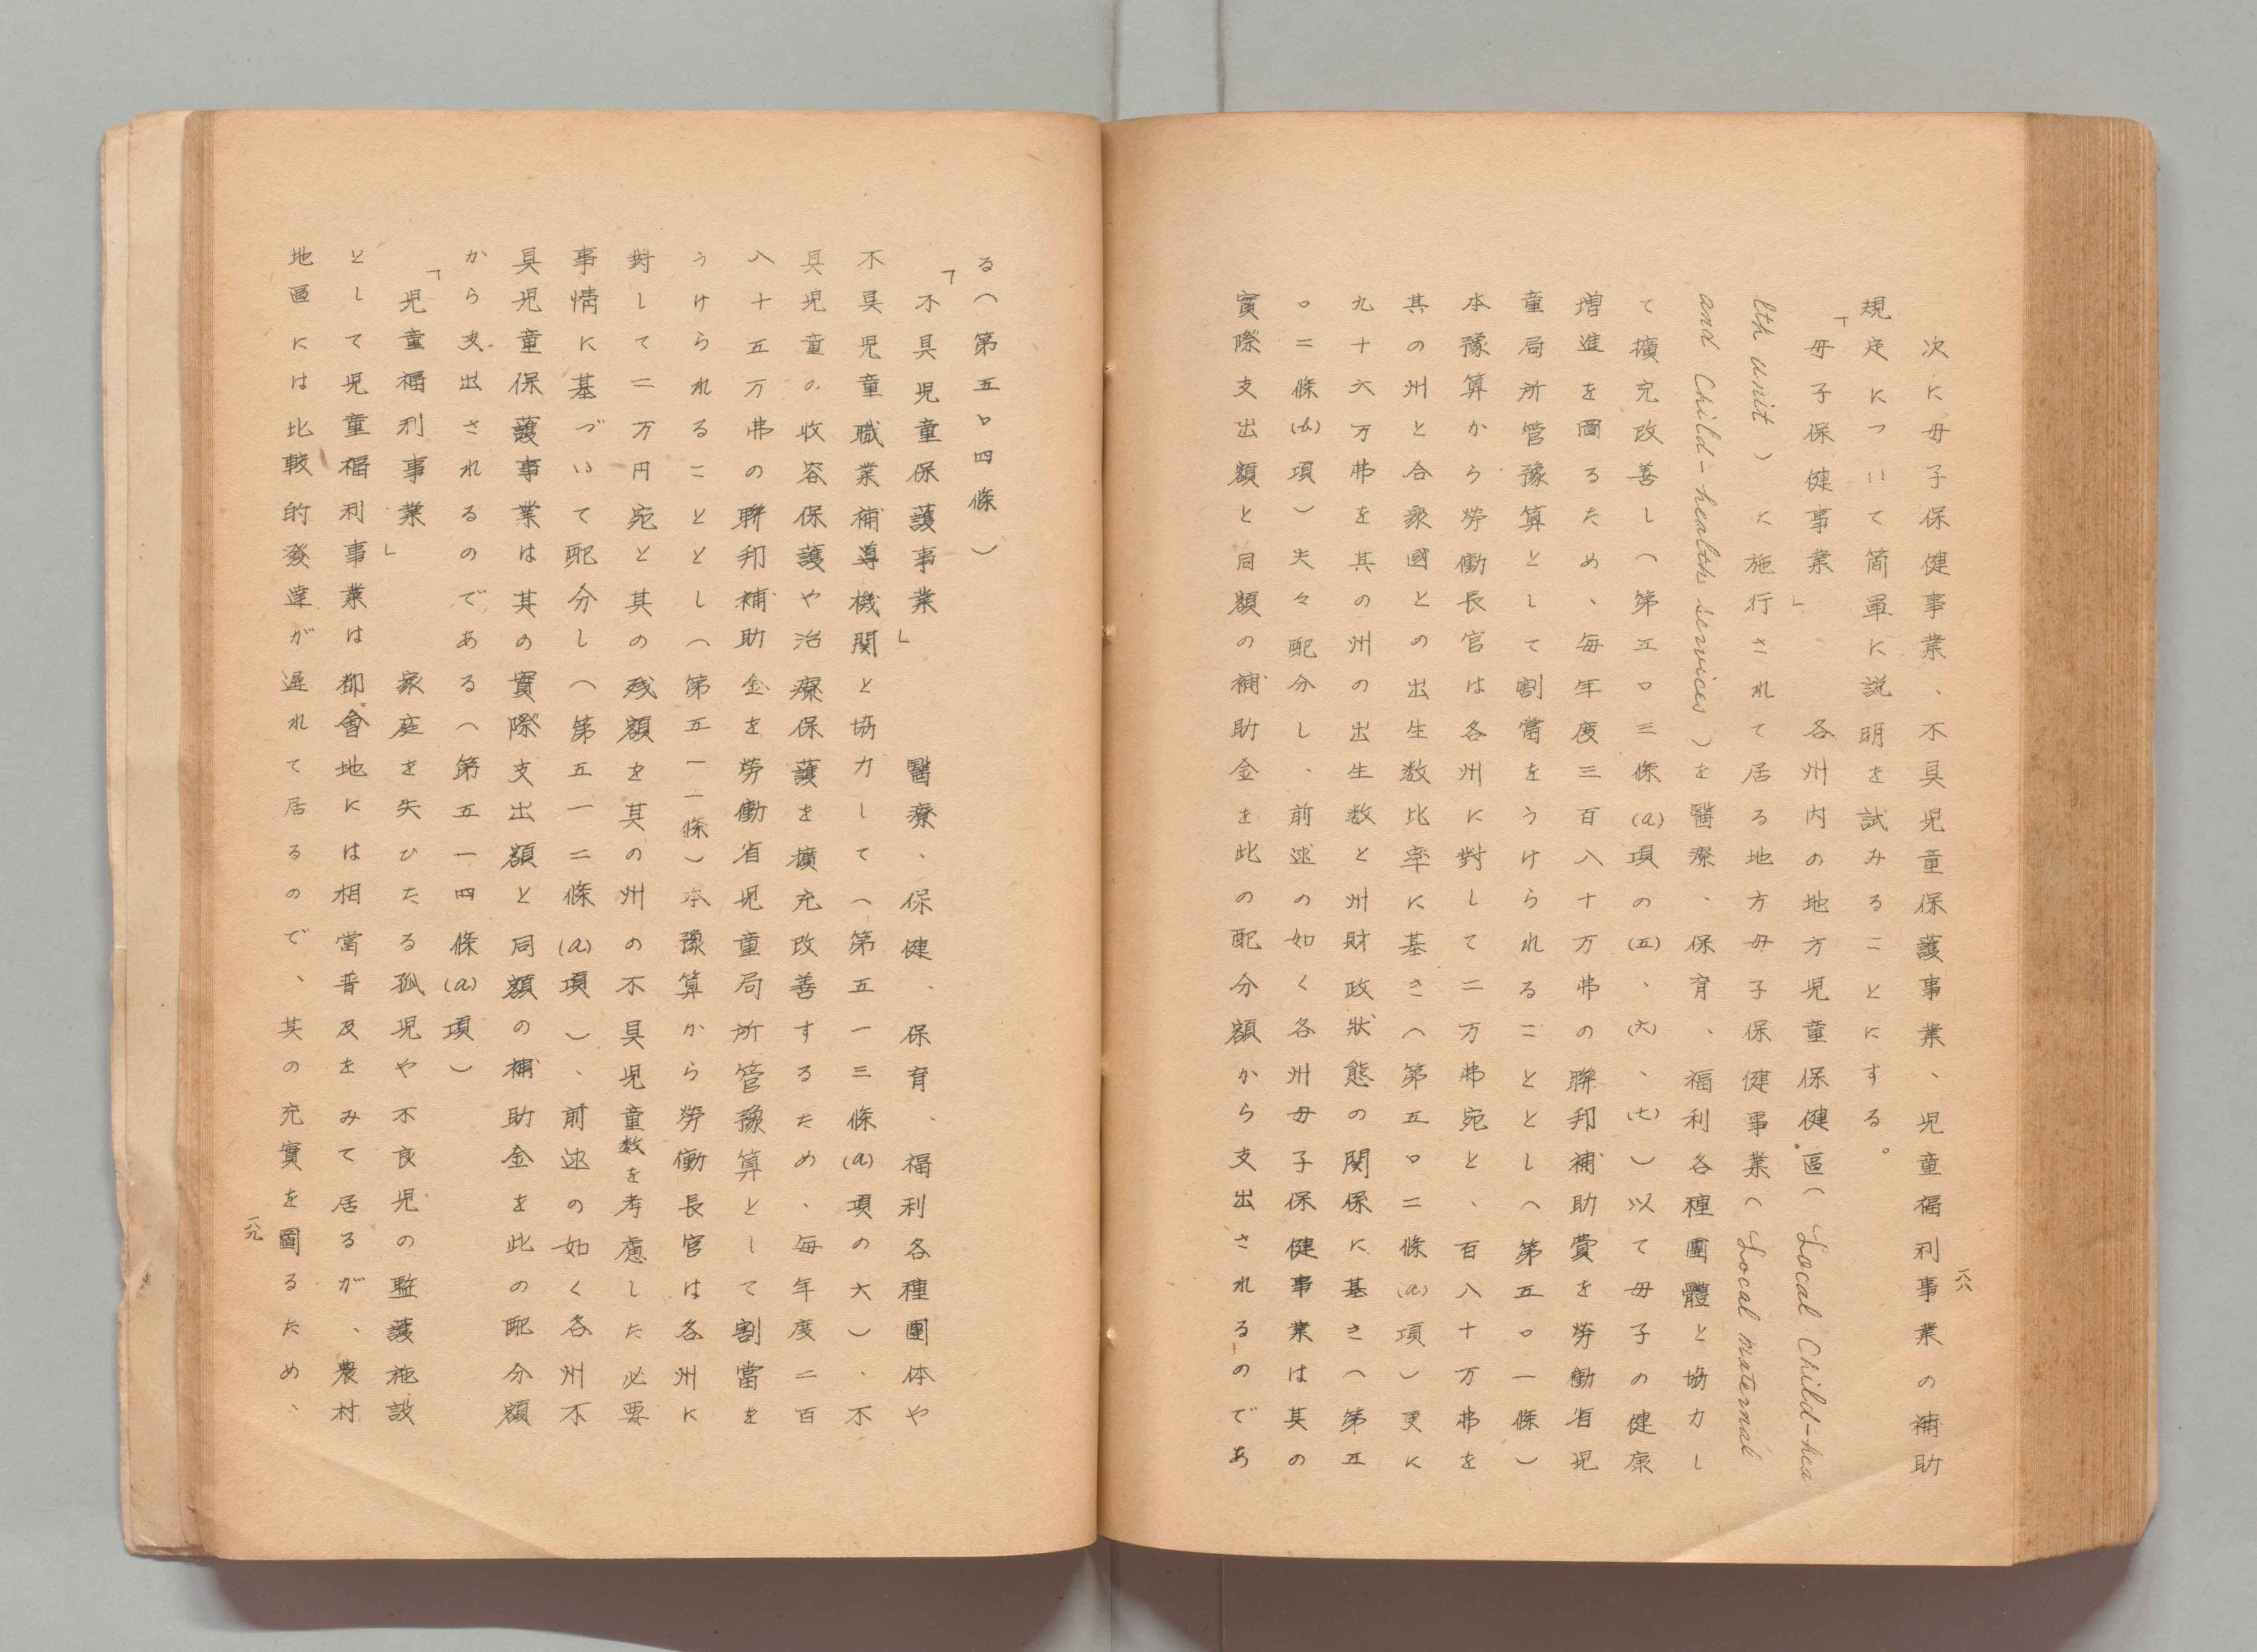 次に母子保健事業、不具児童保護事業、児童福利事業の補助
規定について簡単に説明を試みることにする。
「母子保健事業」　各州内の地方児童保健區(Local Child-hea
lth unit)に施行されて居る地方母子保健事業(Local maternal
and Child-health services)を醫療、保育、福利各種團體と協力し
て擴充改善し(第五〇三條(a)項の(五)、(六)、(七))以て母子の健康
増進を圖るため、毎年度三百八十万弗の聯邦補助費を労働省児
童局所管豫算として割當をうけられることとし(第五〇一條)
本豫算から労働長官は各州に對して二万弗宛と、百八十万弗を
其の州と合衆國との出生数比率に基き(第五〇二條(a)項)更に
九十六万弗を其の州の出生数と州財政狀態の関係に基き(第五
〇二條(b)項)夫々配分し、前述の如く各州母子保健事業は其の
實際支出額と同額の補助金を此の配分額から支出されるのであ
一八八
る(第五〇四條)
「不具児童保護事業」　醫療、保健、保育、福利各種團体や
不具児童職業補導機関と協力して(第五一三條(a)項の六)、不
具児童の收容保護や治療保護を擴充改善するため、毎年度二百
八十五万弗の聯邦補助金を労働省児童局所管豫算として割當を
うけられることとし(第五一一條)本豫算から労働長官は各州に
對して二万円宛と其の残額を其の州の不具児童数を考慮した必要
事情に基づいて配分し(第五一二條(a)項)、前述の如く各州不
具児童保護事業は其の實際支出額と同額の補助金を此の配分額
から支出されるのである(第五一四條(a)項)
「児童福利事業」　家庭を失ひたる孤児や不良児の監護施設
として児童福利事業は都會地には相當普及をみて居るが、農村
地區には比較的發達が遅れて居るので、其の充實を圖るため、
一八九